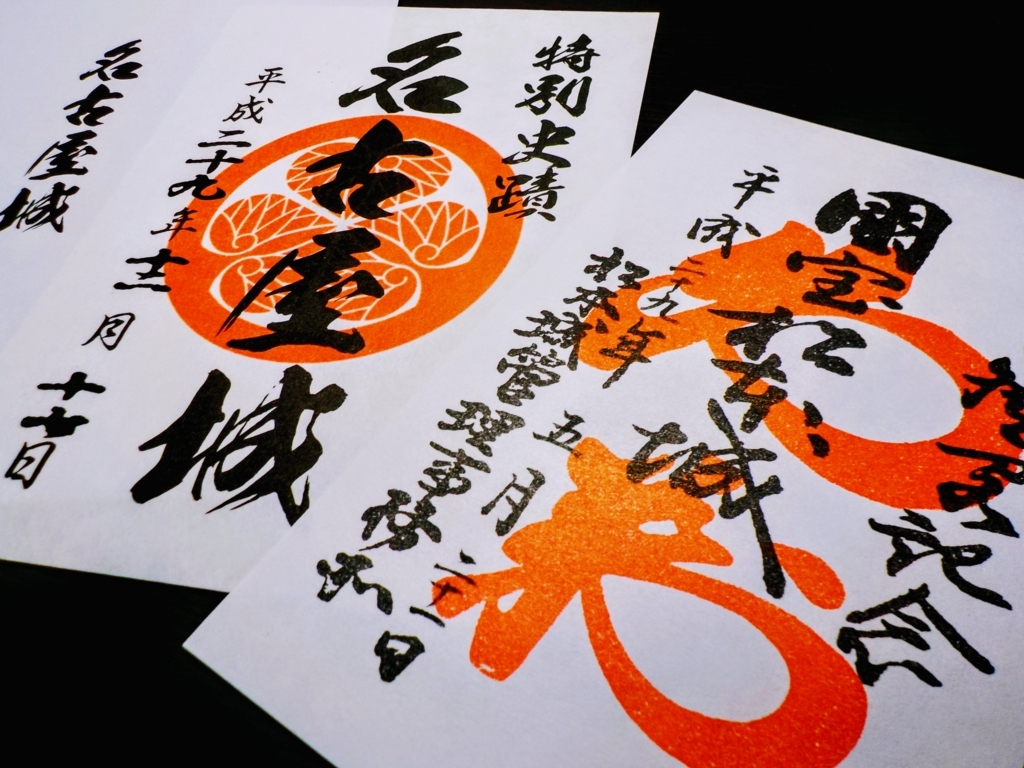 記念
國宝松本城
平成二十九年五月二十一日
松本城管理事務所
特別史蹟
名古屋城
平成二十九年十二月十七日
名古屋城